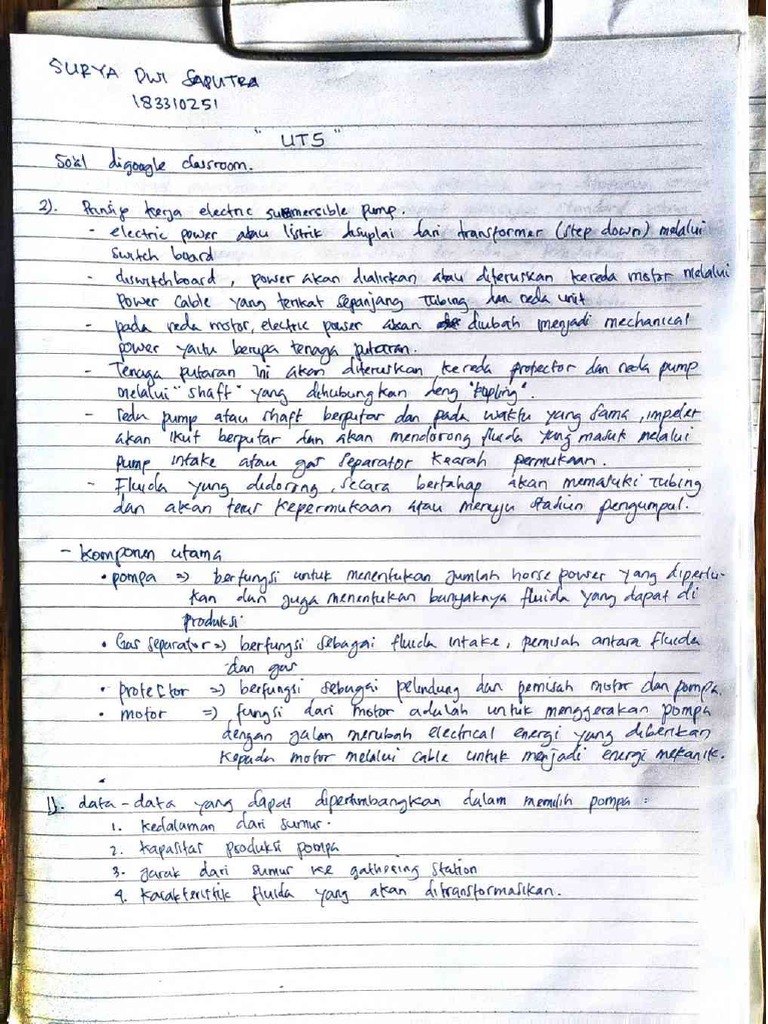 SURYA DWI SAPUTRA
183310251
" UTS "
Soal digoogle classroom.
2). Prinsip kerja electric submersible pump.
- electric power atau listrik disuplai dari transformer (step down) melalui
switch board
- diswitchboard, power akan dialirkan atau diteruskan kereda motor melalui
power cable yang terikat sepanjang tubing dan reda unit
- pada reda motor, electric power akan diubah menjadi mechanical
power yaitu berupa tenaga putaran.
- Tenaga putaran ini akan diteruskan ke reda protector dan reda pump
melalui "shaft" yang dihubungkan deng "kopling".
- reda pump atau shaft berputar dan pada waktu yang sama, impeler
akan ikut berputar dan akan mendorong fluida yang masuk melalui
pump intake atau gas separator kearah permukaan.
- Fluida yang didorong, secara bertahap akan memasuki tubing
dan akan terus kepermukaan atau menuju stasiun pengumpul.
- Komponen utama
• pompa => berfungsi untuk menentukan jumlah horse power yang diperlu-
kan dan juga menentukan banyaknya fluida yang dapat di
produksi.
• Gas separator => berfungsi sebagai fluida intake, pemisah antara fluida
dan gas
• protector => berfungsi sebagai pelindung dan pemisah motor dan pompa.
• motor => fungsi dari motor adalah untuk menggerakan pompa
dengan jalan merubah electrical energi yang diberikan
kepada motor melalui cable untuk menjadi energi mekanik.
1). data-data yang dapat dipertimbangkan dalam memilih pompa :
1. kedalaman dari sumur.
2. kapasitas produksi pompa
3. jarak dari sumur ke gathering station
4. karakteristik fluida yang akan ditransformasikan.